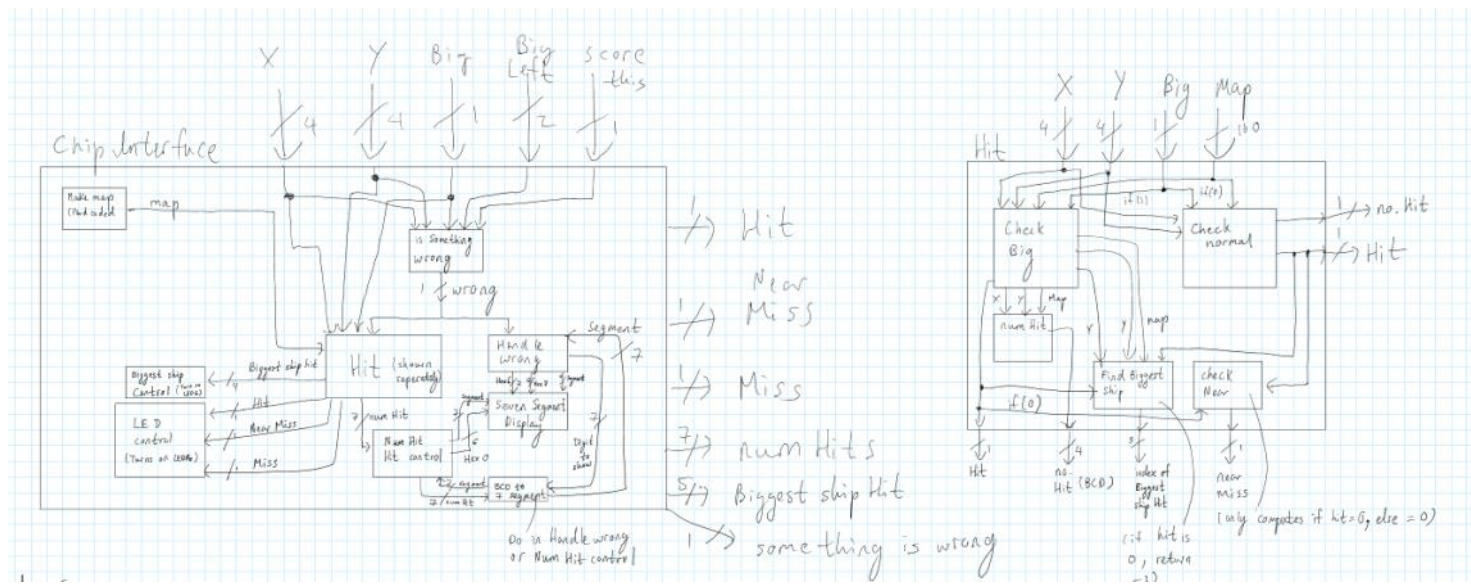 X
Y
Big
Big
Left
score
this
4
4
1
2
1
Chip Interface
Make map
map
is Something
wrong
1
wrong
Hit (shown
seperately)
Handle
wrong
segment
7
Biggest ship
Control
Biggest ship hit
4
LED
control
(Turns on LEDs)
Hit
1
Near Miss
Miss
1
7
num Hit
Num Hit
Hit control
segment
7
6
Hex 0
Seven Segment
Display
7
Digit
to
show
segment
7
num Hit
BCD to
7 segment
Do in Handle wrong
or Num Hit control
1
Hit
1
Near
Miss
1
Miss
7
num Hits
5
Biggest ship Hit
1
something is wrong
X
Y
Big
Map
4
4
1
Hit
if(1)
if(0)
Check
Big
Check
normal
1
no. Hit
1
Hit
X
Y
Map
num Hit
Y
map
Find Biggest
ship
check
Near
if(0)
1
Hit
4
no.
Hit (BCD)
index of
Biggest
ship Hit
1
near
miss
(only computes if hit=0, else = 0)
(if hit is
0, return
-1)